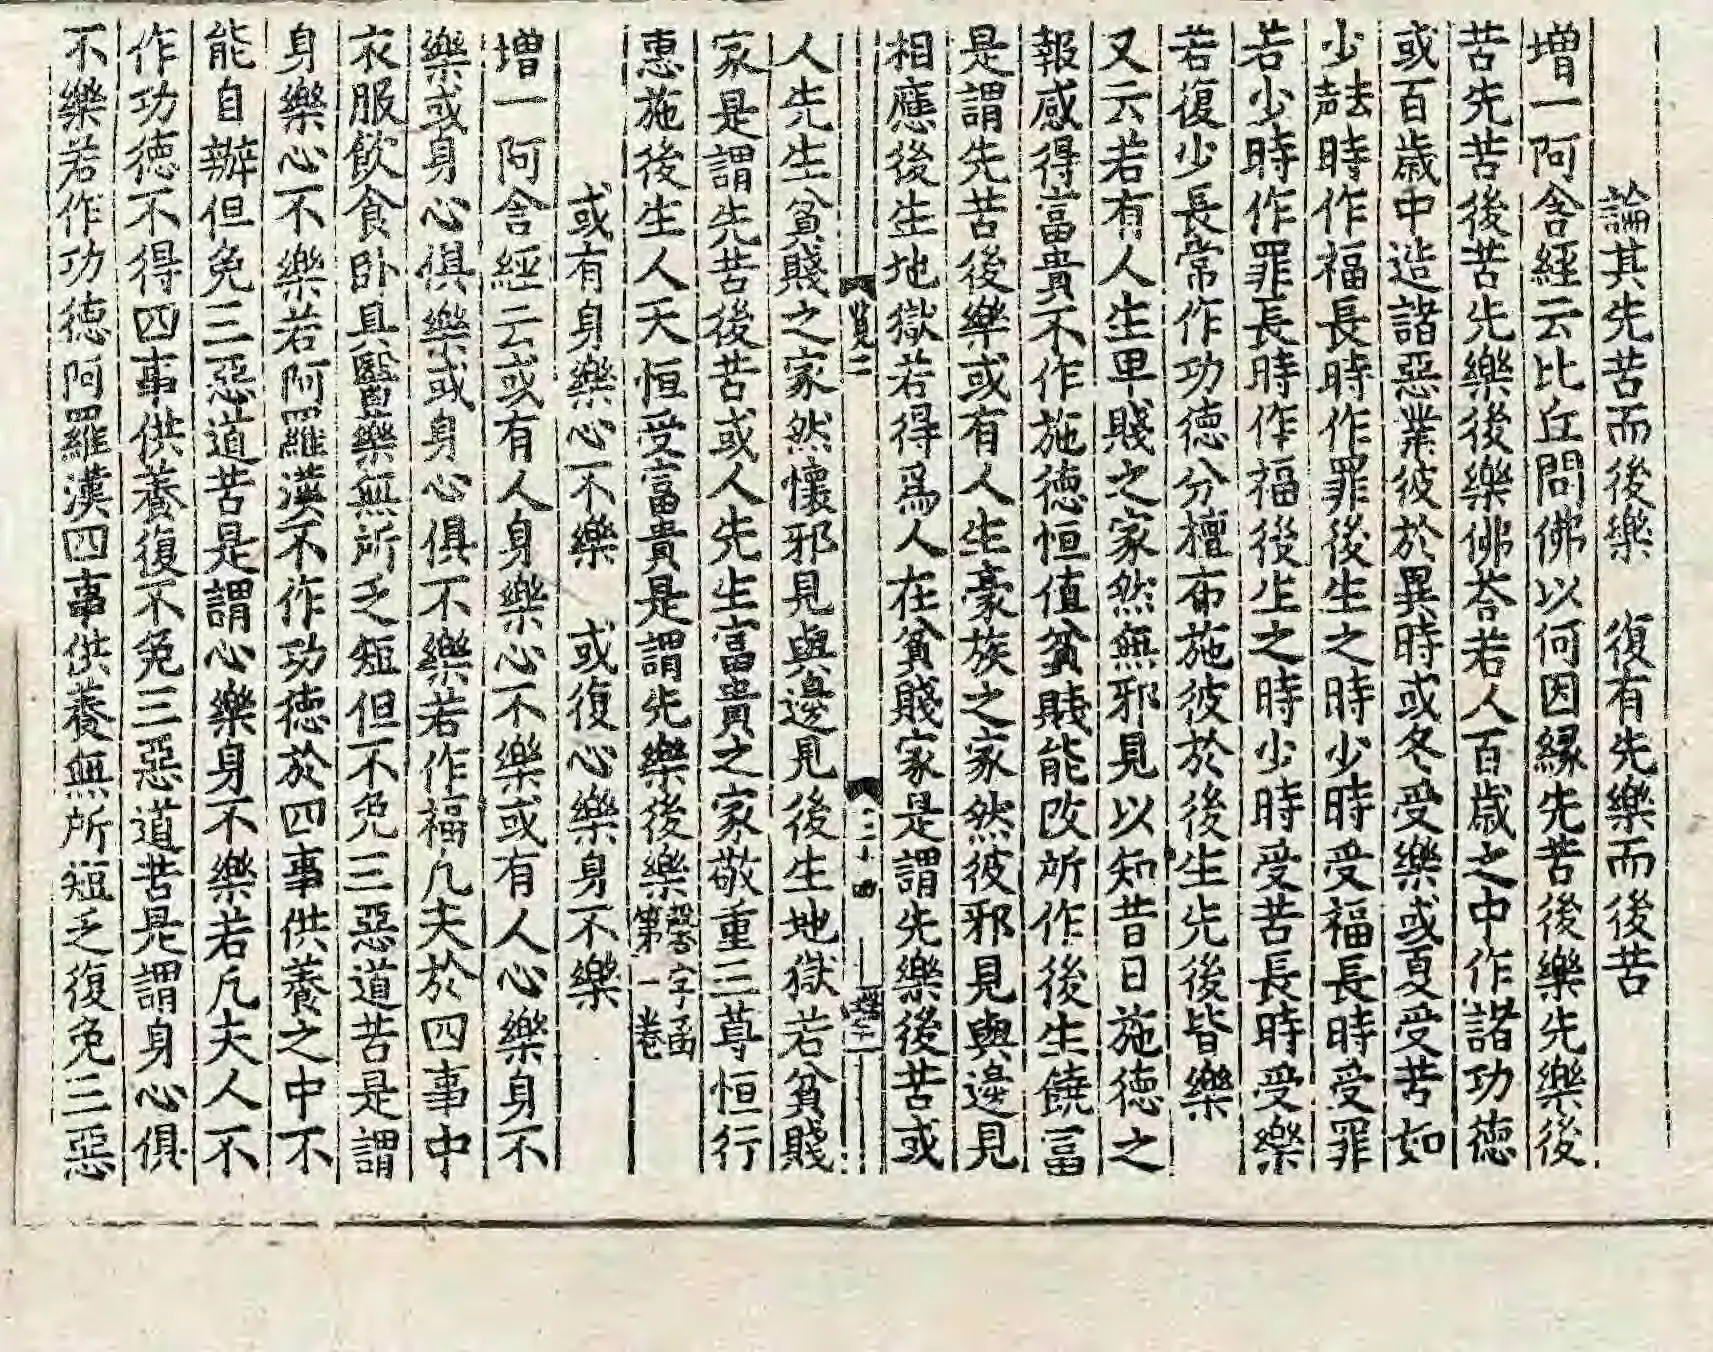 論其先苦而後樂　復有先樂而後苦
增一阿含經云比丘問佛以何因縁先苦後樂先樂後
苦先苦後苦先樂後樂佛荅若人百歲之中作諸功德
或百歲中造諸惡業彼於異時或冬受樂或夏受苦如
少時作福長時作罪後生之時少時受福長時受罪
若少時作罪長時作福後生之時少時受苦長時受樂
若復少長常作功德分檀布施彼於後生先後皆樂
又云若有人生卑賤之家然無邪見以知昔日施德之
報感得富貴不作施德恒值貧賤能改所作後生饒富
是謂先苦後樂或有人生豪族之家然彼邪見與邊見
相應後生地獄若得爲人在貧賤家是謂先樂後苦或
二十四
人先生貧賤之家然懷邪見與邊見後生地獄若貧賤
家是謂先苦後苦或人先生富貴之家敬重三尊恒行
惠施後生人天恒受富貴是謂先樂後樂馨字函第一卷
或有身樂心不樂　或復心樂身不樂
增一阿含經云或有人身樂心不樂或有人心樂身不
樂或身心俱樂或身心俱不樂若作福凡夫於四事中
衣服飲食卧具醫藥無所乏短但不免三惡道苦是謂
身樂心不樂若阿羅漢不作功德於四事供養之中不
能自辦但免三惡道苦是謂心樂身不樂若凡夫人不
作功德不得四事供養復不免三惡道苦是謂身心俱
不樂若作功德阿羅漢四事供養無所短乏復免三惡